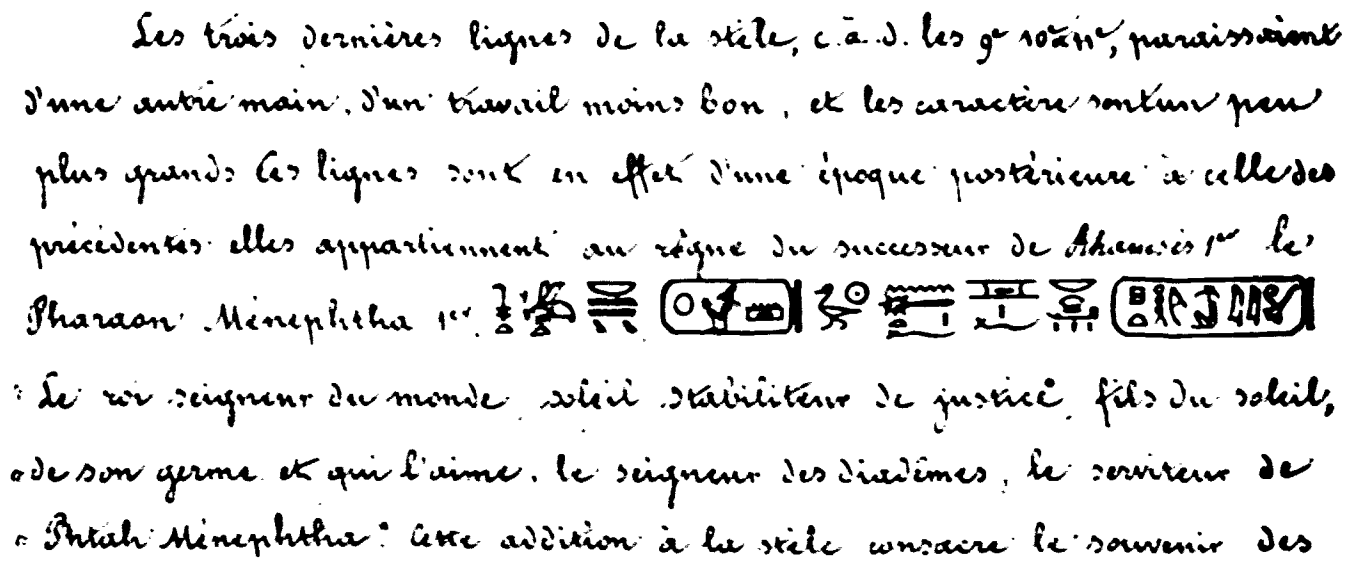 Les trois dernières lignes de la stèle, c. à. d. les 9e 10e 11e, paraissaient
d'une autre main, d'un travail moins bon, et les caractère sont un peu
plus grands Ces lignes sont en effet d'une époque postérieure à celle des
précédentes elles appartiennent au règne du successeur de Rhamsès 1er le
Pharaon Ménephtha 1er
"Le roi seigneur du monde soleil stabiliteur de justice, fils du soleil,
"de son germe et qui l'aime, le seigneur des diadêmes, le serviteur de
"Phtah Ménephtha" Cette addition à la stèle consacre le souvenir des